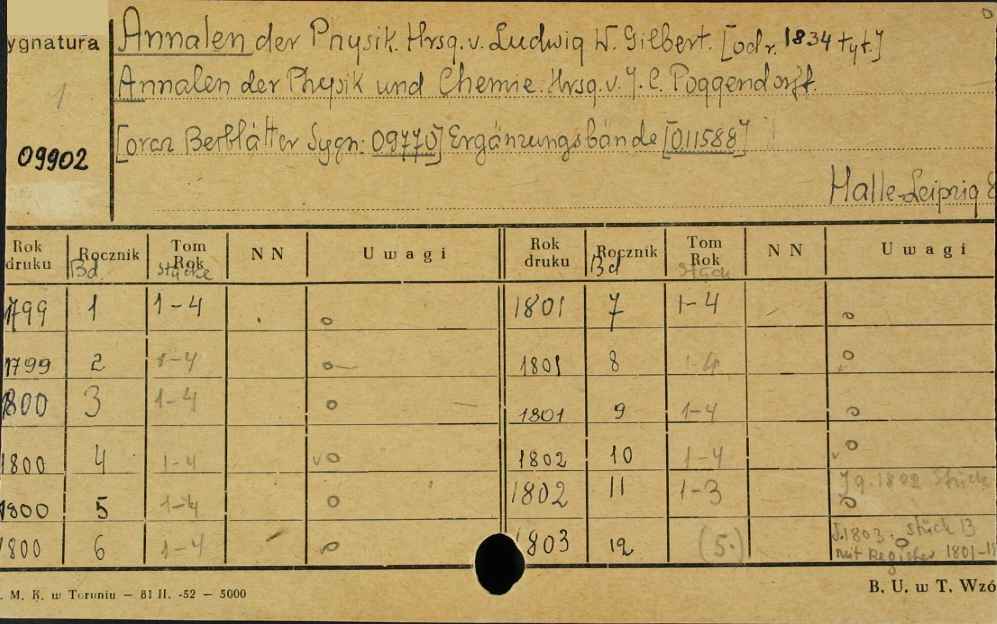 ygnatura
1
09902
Annalen der Physik. Hrsg. v. Ludwig W. Gilbert. [od r. 1834 tyt.]
Annalen der Physik und Chemie. Hrsg. v. J. C. Poggendorff.
[oraz Beiblätter Sygn: 09770] Ergänzungsbände [011588]
Halle-Leipzig
Rok druku Rocznik Tom Rok N N Uwagi Rok druku Rocznik Tom Rok N N Uwagi
Bd. Stücke Bd Stück
1799 1 1-4 o 1801 7 1-4 o
1799 2 1-4 o 1801 8 1-4 o
1800 3 1-4 o 1801 9 1-4 o
1800 4 1-4 v o 1802 10 1-4 v o
1800 5 1-4 o 1802 11 1-3 Jg. 1802 Stück o
1800 6 1-4 o 1803 12 (5.) J. 1803. Stück 13 o
mit Register 1801-1
. M. K. w Toruniu — 81 II. -52 — 5000
B. U. w T. Wzó